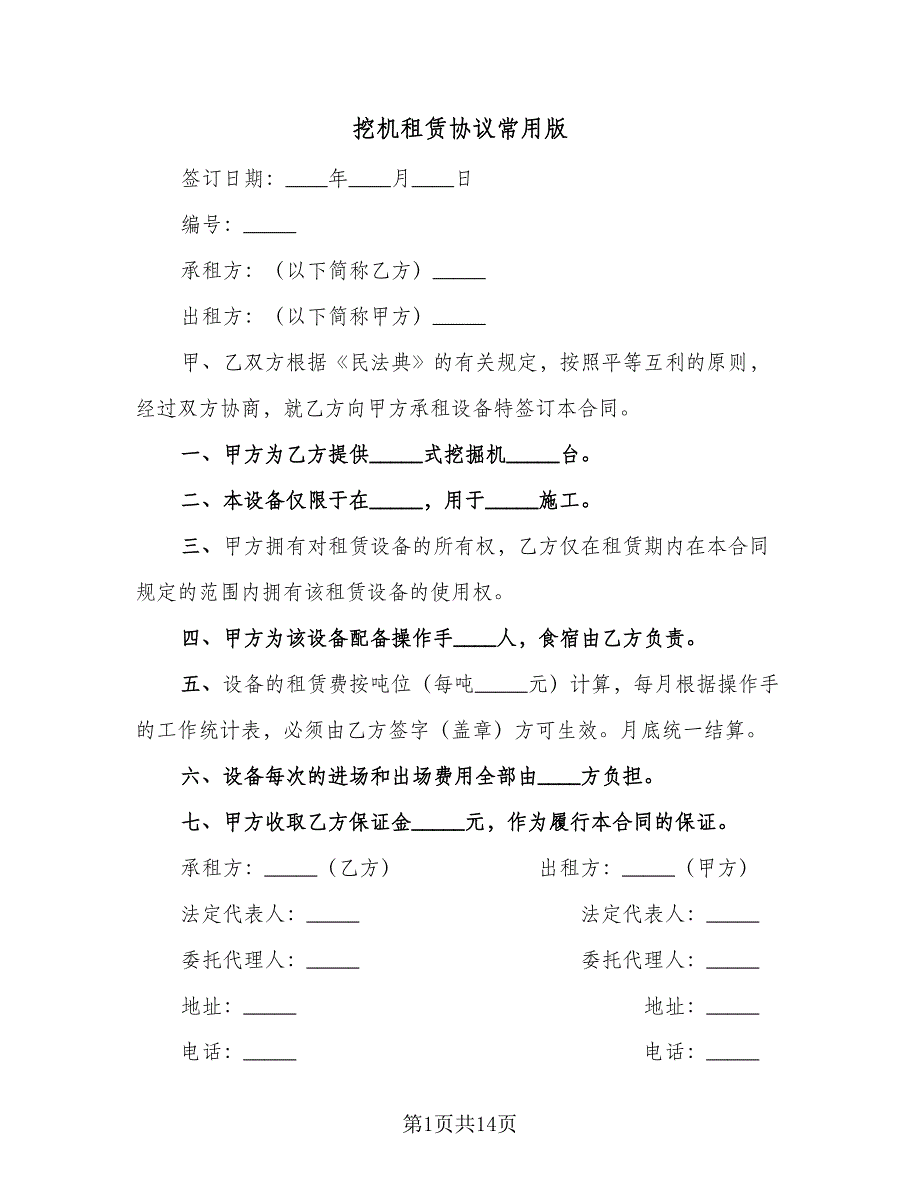 挖机租赁协议常用版
签订日期：____年____月____日
编号：_____
承租方：（以下简称乙方）_____
出租方：（以下简称甲方）_____
甲、乙双方根据《民法典》的有关规定，按照平等互利的原则，
经过双方协商，就乙方向甲方承租设备特签订本合同。
一、甲方为乙方提供_____式挖掘机_____台。
二、本设备仅限于在_____，用于_____施工。
三、甲方拥有对租赁设备的所有权，乙方仅在租赁期内在本合同
规定的范围内拥有该租赁设备的使用权。
四、甲方为该设备配备操作手____人，食宿由乙方负责。
五、设备的租赁费按吨位（每吨_____元）计算，每月根据操作手
的工作统计表，必须由乙方签字（盖章）方可生效。月底统一结算。
六、设备每次的进场和出场费用全部由____方负担。
七、甲方收取乙方保证金_____元，作为履行本合同的保证。
承租方：_____（乙方） 出租方：_____（甲方）
法定代表人：_____ 法定代表人：_____
委托代理人：_____ 委托代理人：_____
地址：_____ 地址：_____
电话：_____ 电话：_____
第1页共14页